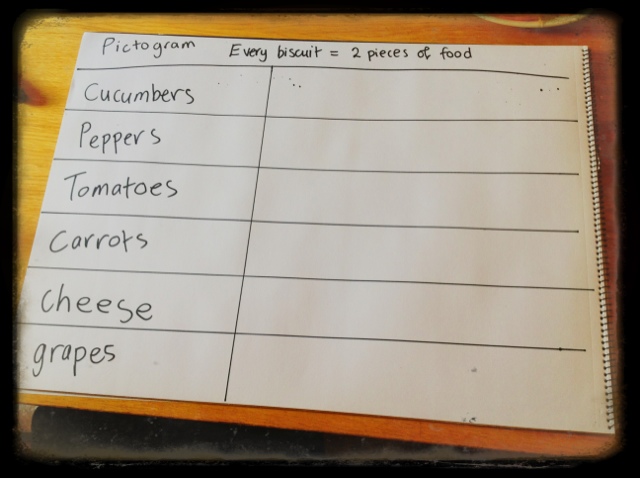 Pictogram Every biscuit = 2 pieces of food
Cucumbers
Peppers
Tomatoes
Carrots
cheese
grapes